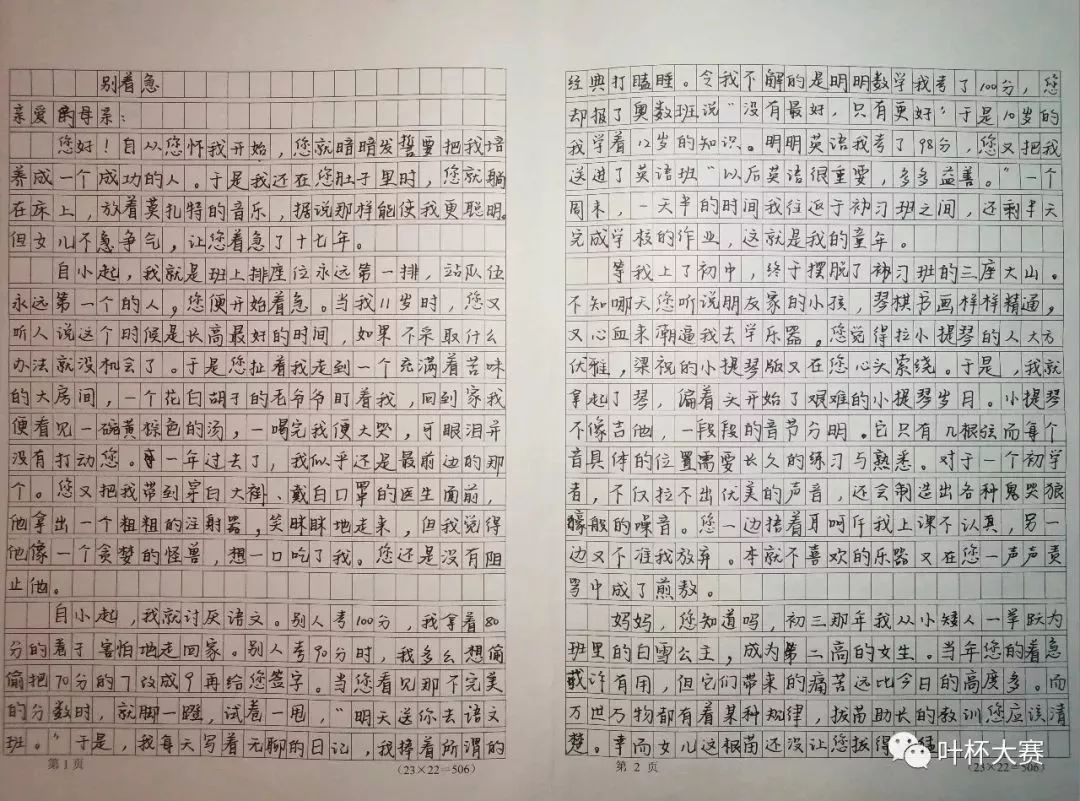 别着急
亲爱的母亲：
您好！自从您怀我开始，您就暗暗发誓要把我培
养成一个成功的人。于是我还在您肚子里时，您就躺
在床上，放着莫扎特的音乐，据说那样能使我更聪明。
但女儿不急争气，让您着急了十七年。
自小起，我就是班上排座位永远第一排，站队伍
永远第一个的人。您便开始着急。当我11岁时，您又
听人说这个时候是长高最好的时间，如果不采取什么
办法就没机会了。于是您扯着我走到一个充满着苦味
的大房间，一个花白胡子的老爷爷盯着我，回到家我
便看见一碗黄棕色的汤，一喝完我便大哭，可眼泪并
没有打动您。一年过去了，我似乎还是最前边的那
个。您又把我带到穿白大褂、戴白口罩的医生面前，
他拿出一个粗粗的注射器，笑眯眯地走来，但我觉得
他像一个贪婪的怪兽，想一口吃了我。您还是没有阻
止他。
自小起，我就讨厌语文。别人考100分，我拿着80
分的卷子害怕地走回家。别人考90分时，我多么想偷
偷把70分的7改成9再给您签字。当您看见那不完美
的分数时，就脚一蹬，试卷一甩，“明天送你去语文
班。”于是，我每天写着无聊的日记，我捧着所谓的
第 1 页
（23×22＝506）
经典打瞌睡。令我不解的是明明数学我考了100分，您
却报了奥数班说“没有最好，只有更好”于是10岁的
我学着12岁的知识。明明英语我考了98分，您又把我
送进了英语班“以后英语很重要，多多益善。”一个
周末，一天半的时间我往返于补习班之间，还剩半天
完成学校的作业，这就是我的童年。
等我上了初中，终于摆脱了补习班的三座大山。
不知哪天您听说朋友家的小孩，琴棋书画样样精通，
又心血来潮逼我去学乐器。您觉得拉小提琴的人大方
优雅，梁祝的小提琴版又在您心头萦绕。于是，我就
拿起了琴，偏着头开始了艰难的小提琴岁月。小提琴
不像吉他，一段段的音节分明。它只有几根弦而每个
音具体的位置需要长久的练习与熟悉。对于一个初学
者，不仅拉不出优美的声音，还会制造出各种鬼哭狼
嚎般的噪音。您一边捂着耳呵斥我上课不认真，另一
边又不准我放弃。本就不喜欢的乐器又在您一声声责
骂中成了煎熬。
妈妈，您知道吗，初三那年我从小矮人一举跃为
班里的白雪公主，成为第二高的女生。当年您的着急
或许有用，但它们带来的痛苦远比今日的高度多。而
万世万物都有着某种规律，拔苗助长的教训您应该清
楚。幸而女儿这根苗还没让您拔得
第 2 页
（23×22＝506）
叶杯大赛